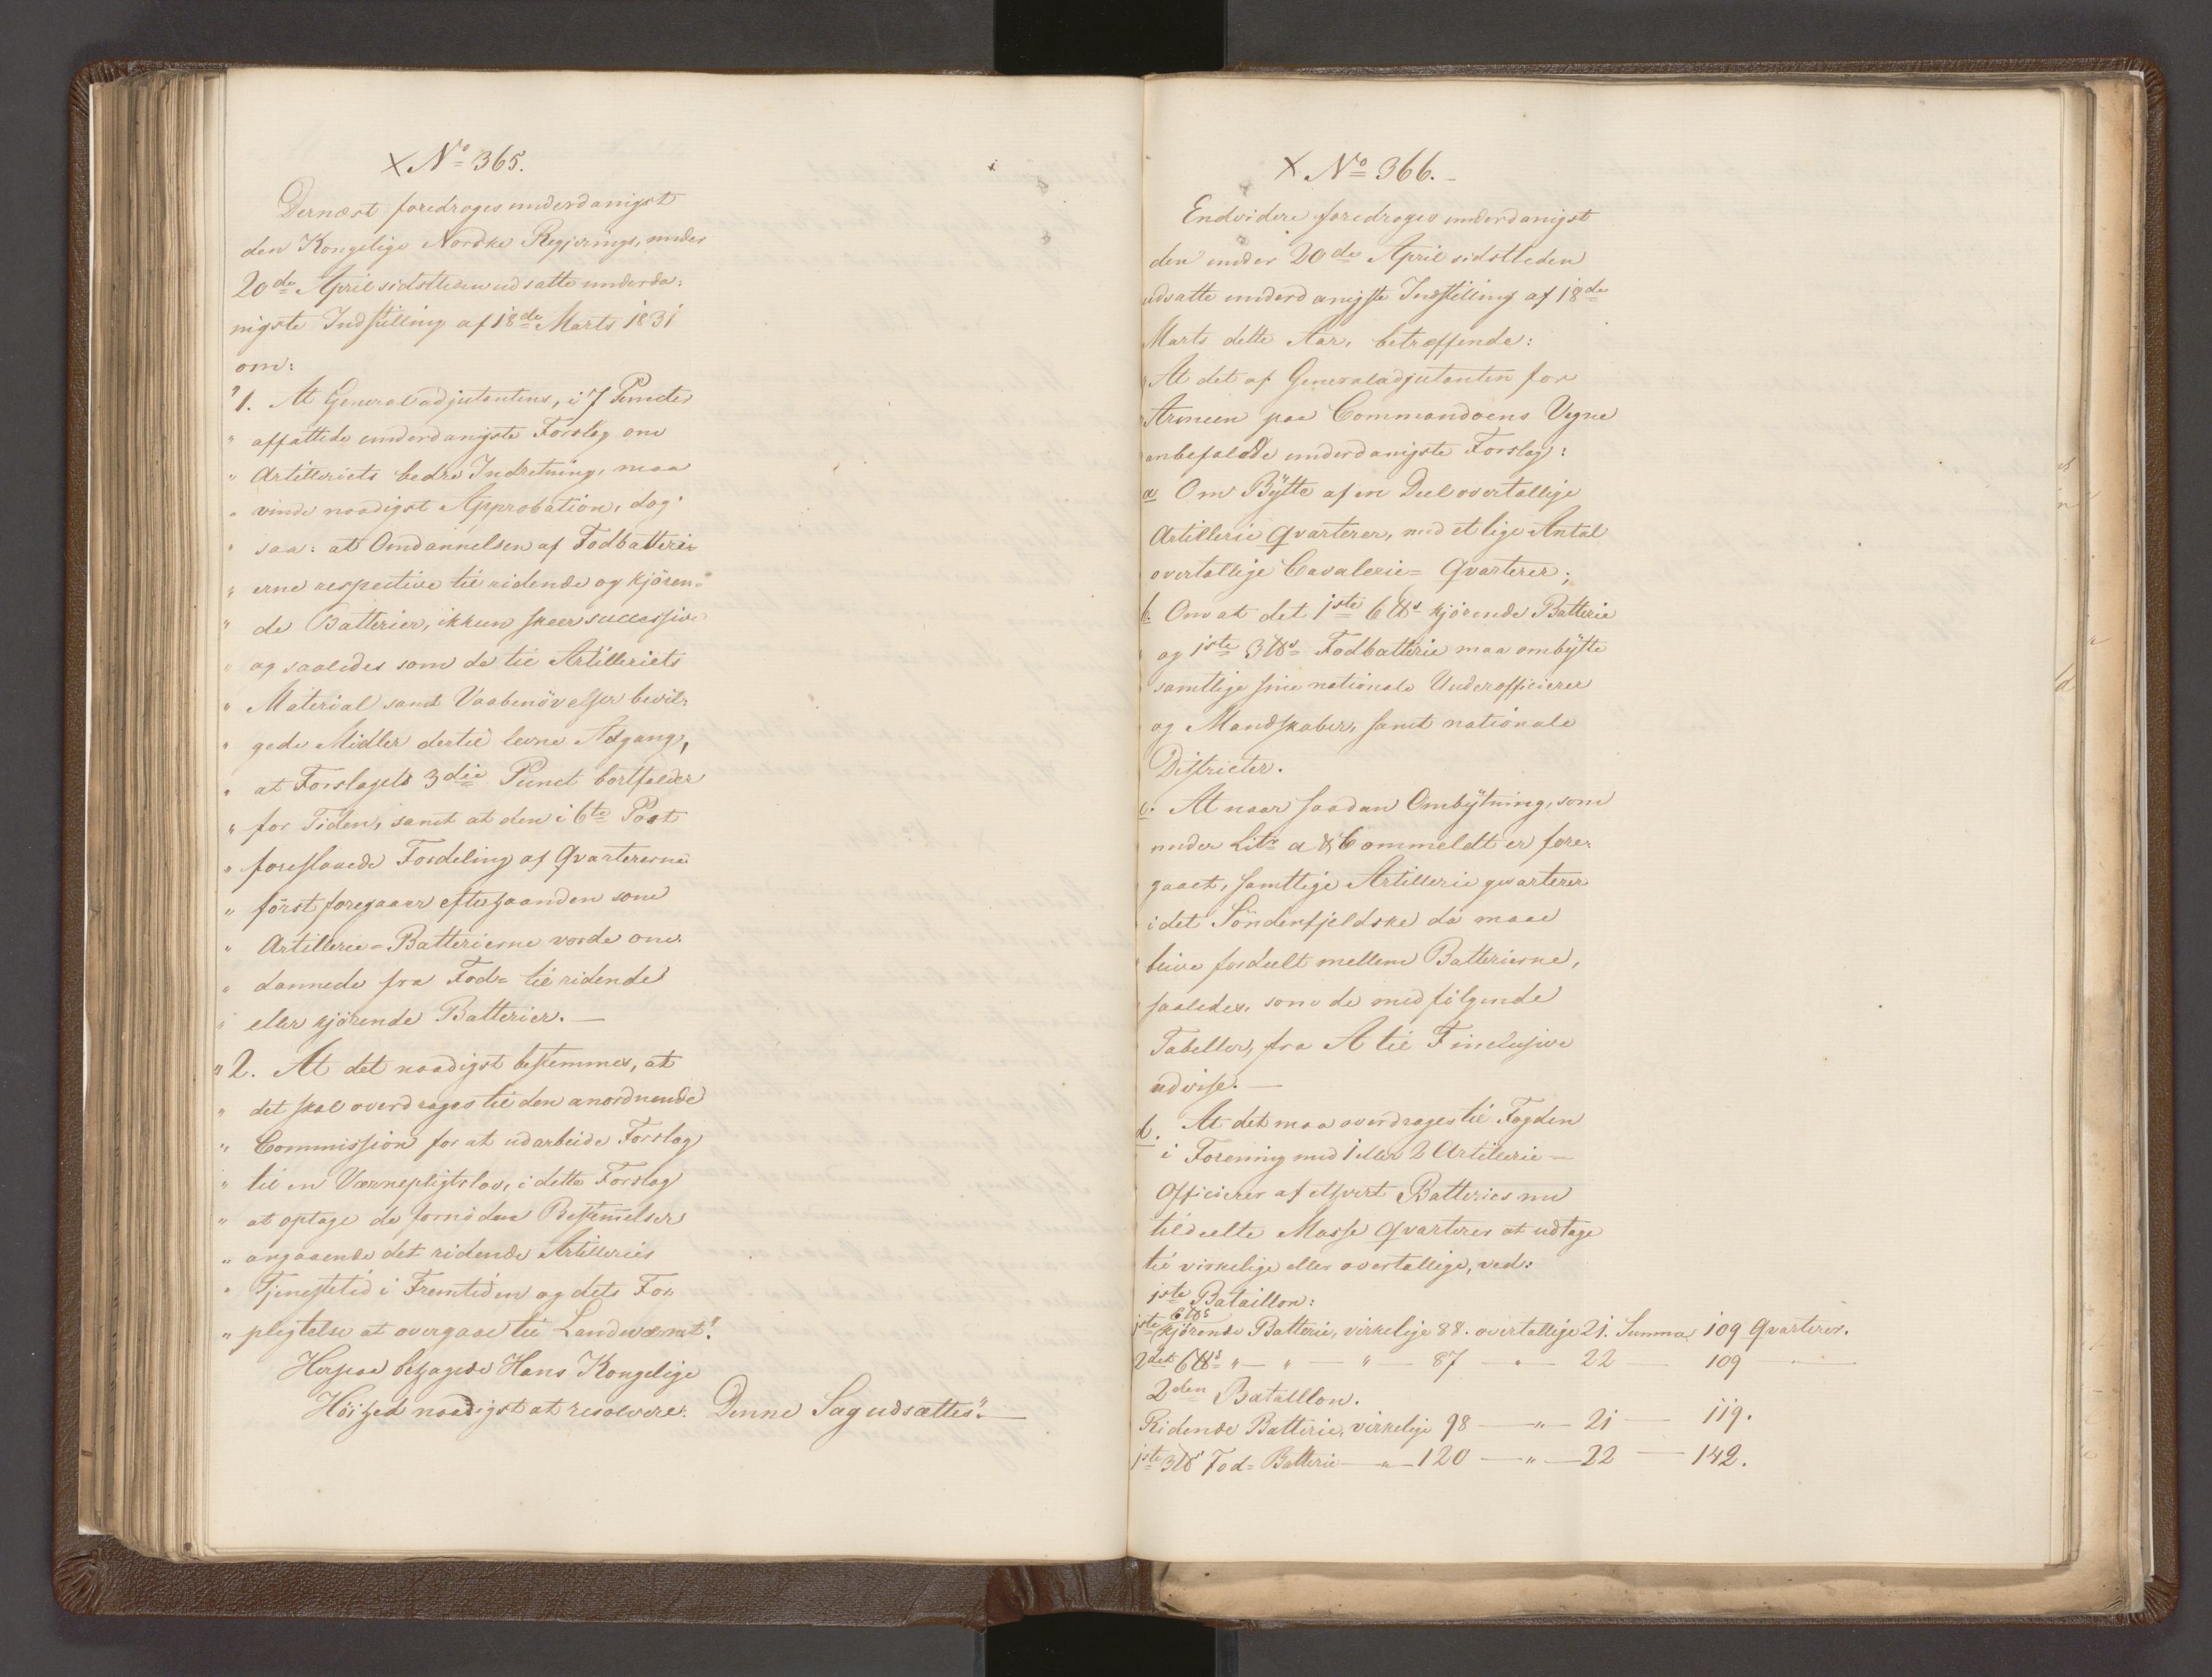 × No 365.
Dernæst foredroges underdanigst
den Kongelige Norske Regjerings, under
20de April sidstleden udsatte underda-
nigste Indstilling af 18de Marts 1831
om:
"1. At Generaladjutantens, i 7 Puncter
" affattede underdanigste Forslag om
" Artilleriets bedre Indretning, maa
" vinde naadigst Approbation, dog
" saa: at Omdannelsen af Fodbatteri-
" erne respective til ridende og kjøren-
" de Batterier, ikkun skeer successive
" og saaledes som de til Artilleriets
" Material samt Vaabenøvelser bevil-
" gede Midler dertil levne Adgang,
" at Forslagets 3die Punct bortfalder
" for Tiden, samt at den i 6te Post
" foreslaaede Fordeling af Qvartererne
" først foregaaer efterhaanden som
" Artillerie-Batterierne vorde om-
" dannede fra Fod- til ridende
" eller kjørende Batterier. —
"2. At det naadigst bestemmes, at
" det skal overdrages til den anordnende
" Commission for at udarbeide Forslag
" til en Værnepligtslov, i dette Forslag
" at optage de fornødne Bestemelser
" angaaende det ridende Artilleries
" Tjenestetid i Fremtiden og dets For-
" pligtelse at overgaae til Landeværnet".
Herpaa behagede Hans Kongelige
Høihed naadigst at resolvere: Denne Sag udsættes". —
× No 366. -
Endvidere foredroges underdanigst
den under 20de April sidstleden
udsatte underdanigste Indstilling af 18de
Marts dette Aar, betræffende:
At det af Generaladjutanten for
Armeen paa Commandoens Vegne
anbefalede underdanigste Forslag:
a Om Bytte af en Deel overtallige
Artillerie Qvarterer, med et lige Antal
overtallige Cavalerie- Qvarterer;
b. Om at det 1ste 6 ℔s kjørende Batterie
og 1ste 3 ℔s Fodbatterie maa ombytte
samtlige sine nationale Underofficierer
og Mandskaber, samt nationale
Districter.
c. At naar saadan Ombytning, som
under Lit. a & b ommeldt er fore-
gaaet, samtlige Artillerie qvarterer
i det Søndenfjeldske da maae
blive fordeelt mellem Batterierne,
saaledes, som de medfølgende
Tabeller, fra A til F inclusive
udvise. —
d. At det maa overdrages til Fogden
i Forening med 1 eller 2 Artillerie-
Officierer af ethvert Batteries nu
tildeelte Masse Qvarterer at udtage
til virkelige eller overtallige, ved:
1ste Bataillon:
1ste 6 ℔s kjørende Batterie, virkelige 88. overtallige 21. Summa 109 Qvarterer.
2det 6 ℔s " — " — " — 87 — " — 22 — 109 — " —
2den Bataillon.
Ridende Batterie, virkelige 98 — " — 21 — 119.
1ste 3 ℔s Fod- Batterie — " — 120 — " — 22 — 142.